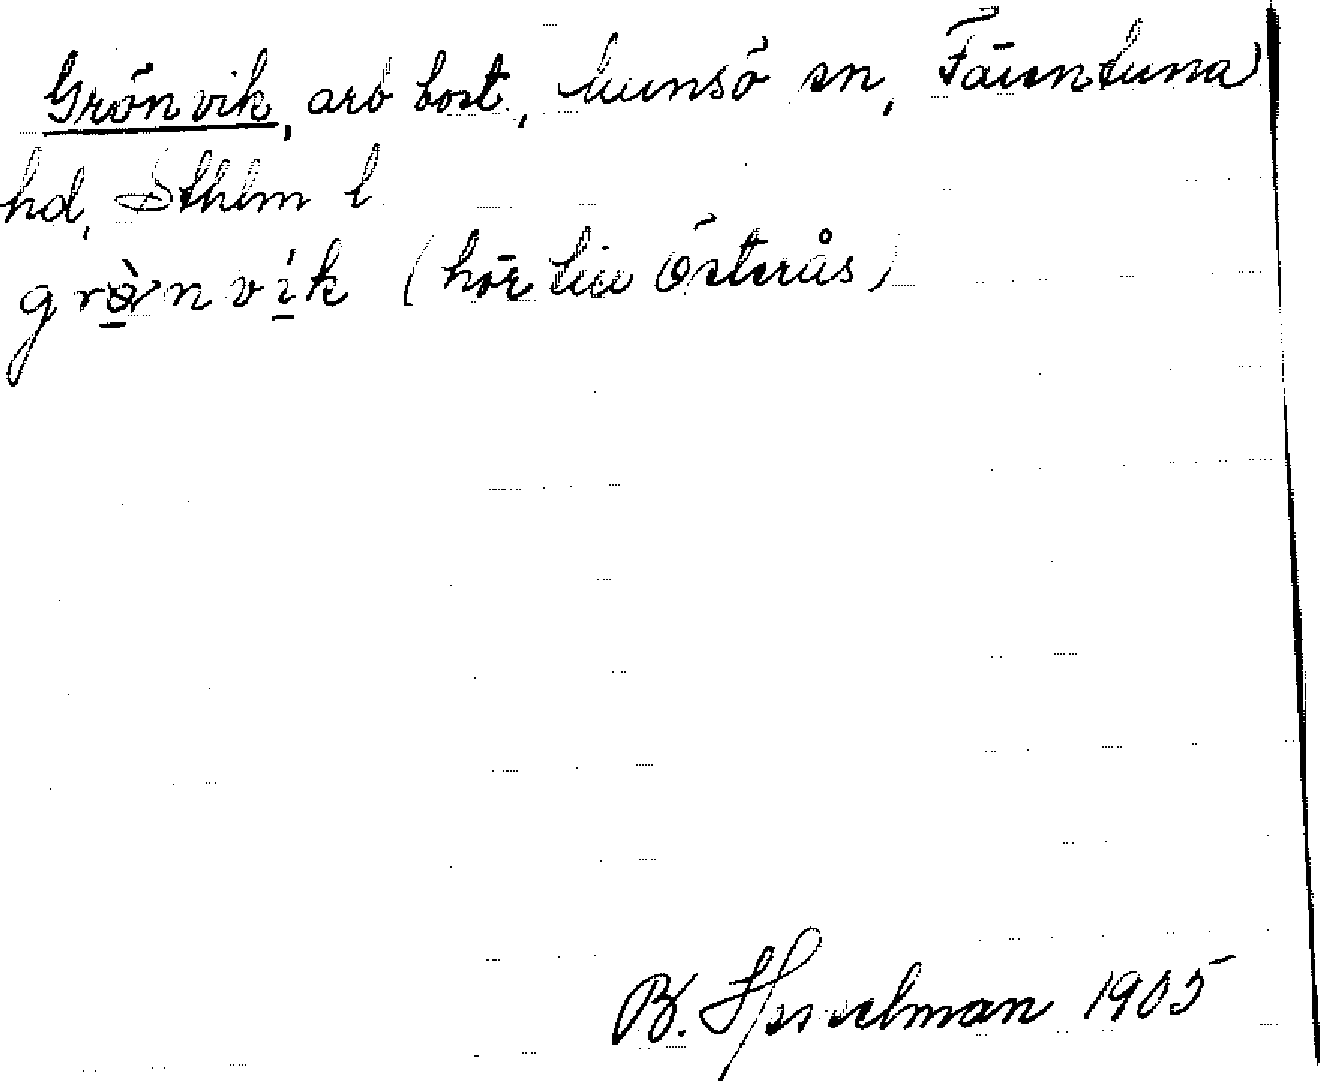 Grönvik, arb bost., Munsö sn, Färentuna
hd, Sthlm l
grö̀nvík (hör till Österås)
B. Hesselman 1905